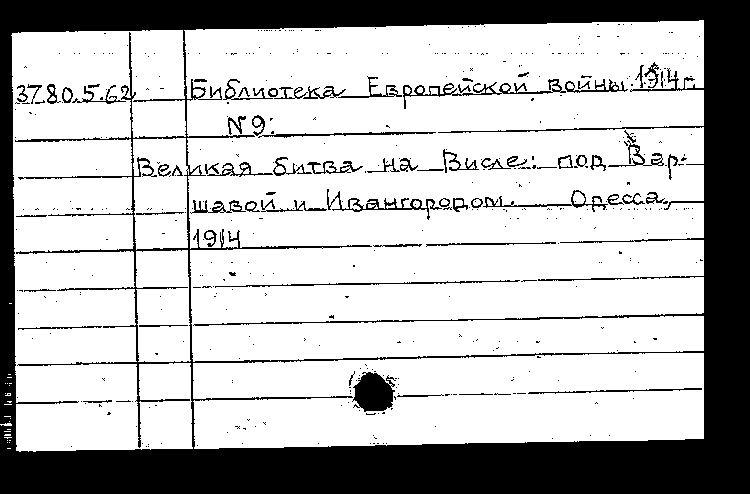 3780.5.62 Библиотека Европейской войны 1914 г.
№9:
Великая битва на Висле: под Вар-
шавой и Ивангородом. Одесса,
1914